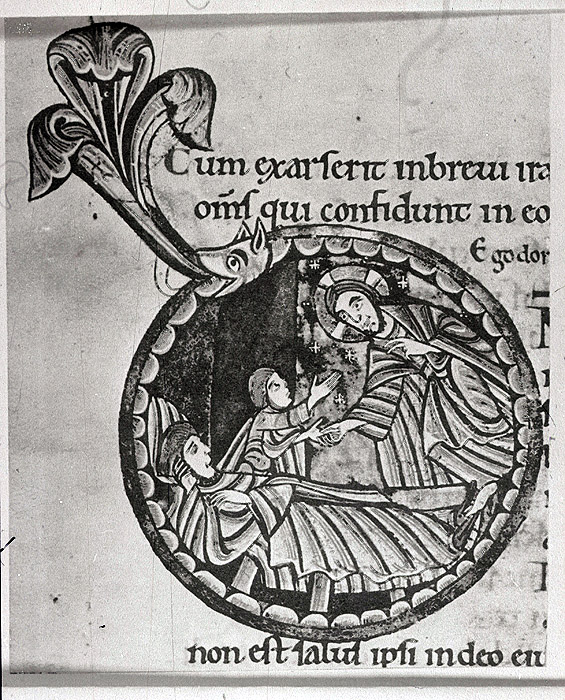 Cum exarserit in brevi ira
om̅s qui confidunt in eo
Ego dor
non est salus ipsi in deo eiu